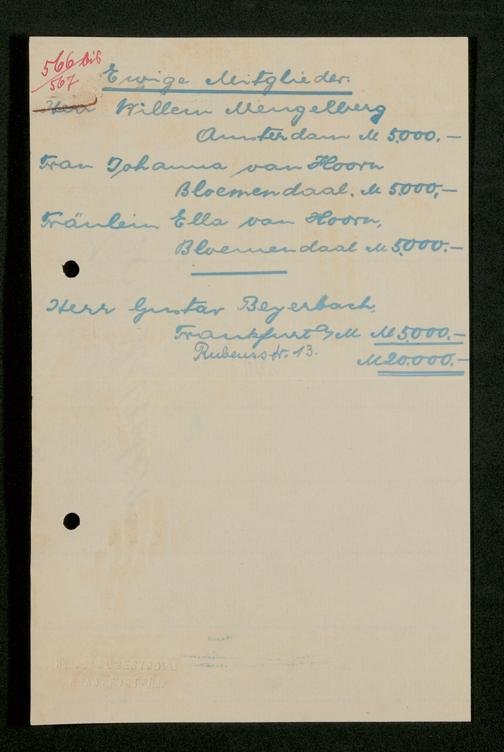 566 bis
567
Ewige Mitglieder.
Herr Willem Mengelberg
Amsterdam M 5,000.–
Frau Johanna van Hoorn
Bloemendaal. M 5.000,–
Fräulein Ella van Hoorn,
Bloemendaal M 5.000.–
Herr Gustav Beyerbach,
Frankfurt a/M M 5.000.–
Rubensstr. 13.
M 20.000.–